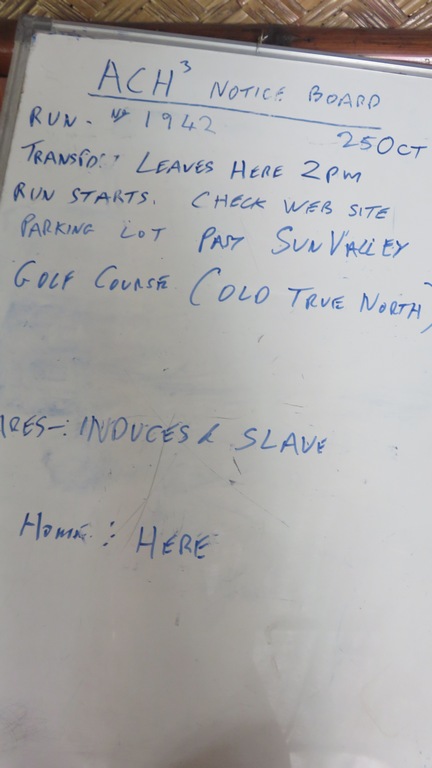 ACH³ NOTICE BOARD
RUN - Nº 1942 25 OCT
TRANSPORT LEAVES HERE 2PM
RUN STARTS. CHECK WEB SITE
PARKING LOT PAST SUN VALLEY
GOLF COURSE (OLD TRUE NORTH)
ARES-: INDUCES & SLAVE
HOME: HERE